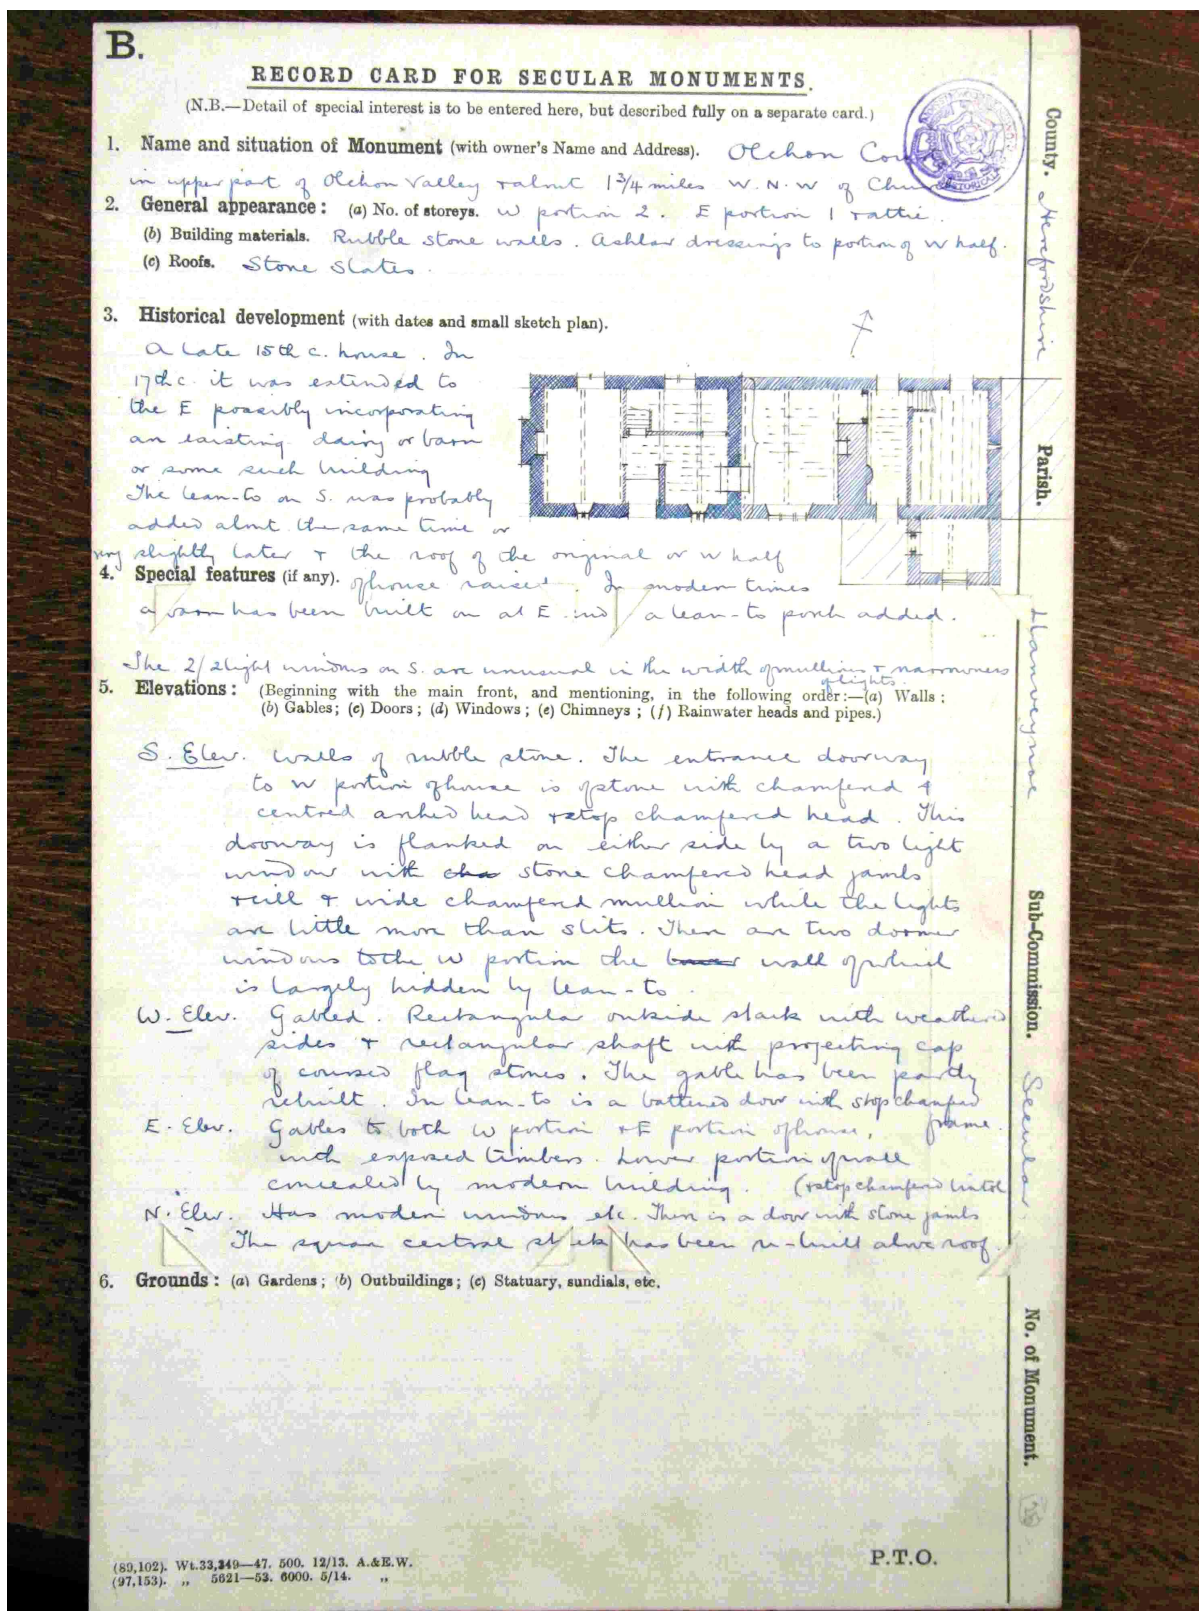 B.
RECORD CARD FOR SECULAR MONUMENTS.
(N.B.—Detail of special interest is to be entered here, but described fully on a separate card.)
1. Name and situation of Monument (with owner's Name and Address). Olchon
in upper part of Olchon Valley & about 1 3/4 miles W.N.W of
2. General appearance: (a) No. of storeys. W portion 2. E portion 1 & attic.
(b) Building materials. Rubble stone walls. Ashlar dressings to portion of W half.
(c) Roofs. Stone Slates.
3. Historical development (with dates and small sketch plan).
A late 15th c. house. In
17th c. it was extended to
the E possibly incorporating
an existing dairy or barn
or some such building
The lean-to on S. was probably
added about the same time or
very slightly later & the roof of the original or W half
4. Special features (if any). of house raised. In modern times
a barn has been built on at E. end a lean-to porch added.
The 2/2light windows on S. are unusual in the width of mullions & narrowness
of lights.
5. Elevations: (Beginning with the main front, and mentioning, in the following order:—(a) Walls;
(b) Gables; (c) Doors; (d) Windows; (e) Chimneys; (f) Rainwater heads and pipes.)
S. Elev. Walls of rubble stone. The entrance doorway
to W portion of house is of stone with chamfered 4
centred arched head & stop chamfered head. This
doorway is flanked on either side by a two light
window with cha stone chamfered head jambs
& cill & wide chamfered mullion while the lights
are little more than slits. There are two dormer
windows to the W portion the lower wall of which
is largely hidden by lean-to.
W. Elev. Gabled. Rectangular outside stack with weathered
sides & rectangular shaft with projecting cap
of coursed flag stones. The gable has been partly
rebuilt. In lean-to is a battened door with stop chamfered
frame.
E. Elev. Gables to both W portion & E portion of house,
with exposed timbers. Lower portion of wall
concealed by modern building. (& stop chamfered lintol
N. Elev. Has modern windows etc. There is a door with stone jambs
The square central stack has been re-built above roof.
6. Grounds: (a) Gardens; (b) Outbuildings; (c) Statuary, sundials, etc.
(89,102). Wt.33,349—47. 500. 12/13. A.&E.W.
(97,153). „ 5621—53. 6000. 5/14. „
P.T.O.
County. Herefordshire
Parish. Llanveynoe
Sub-Commission. Secular
No. of Monument.